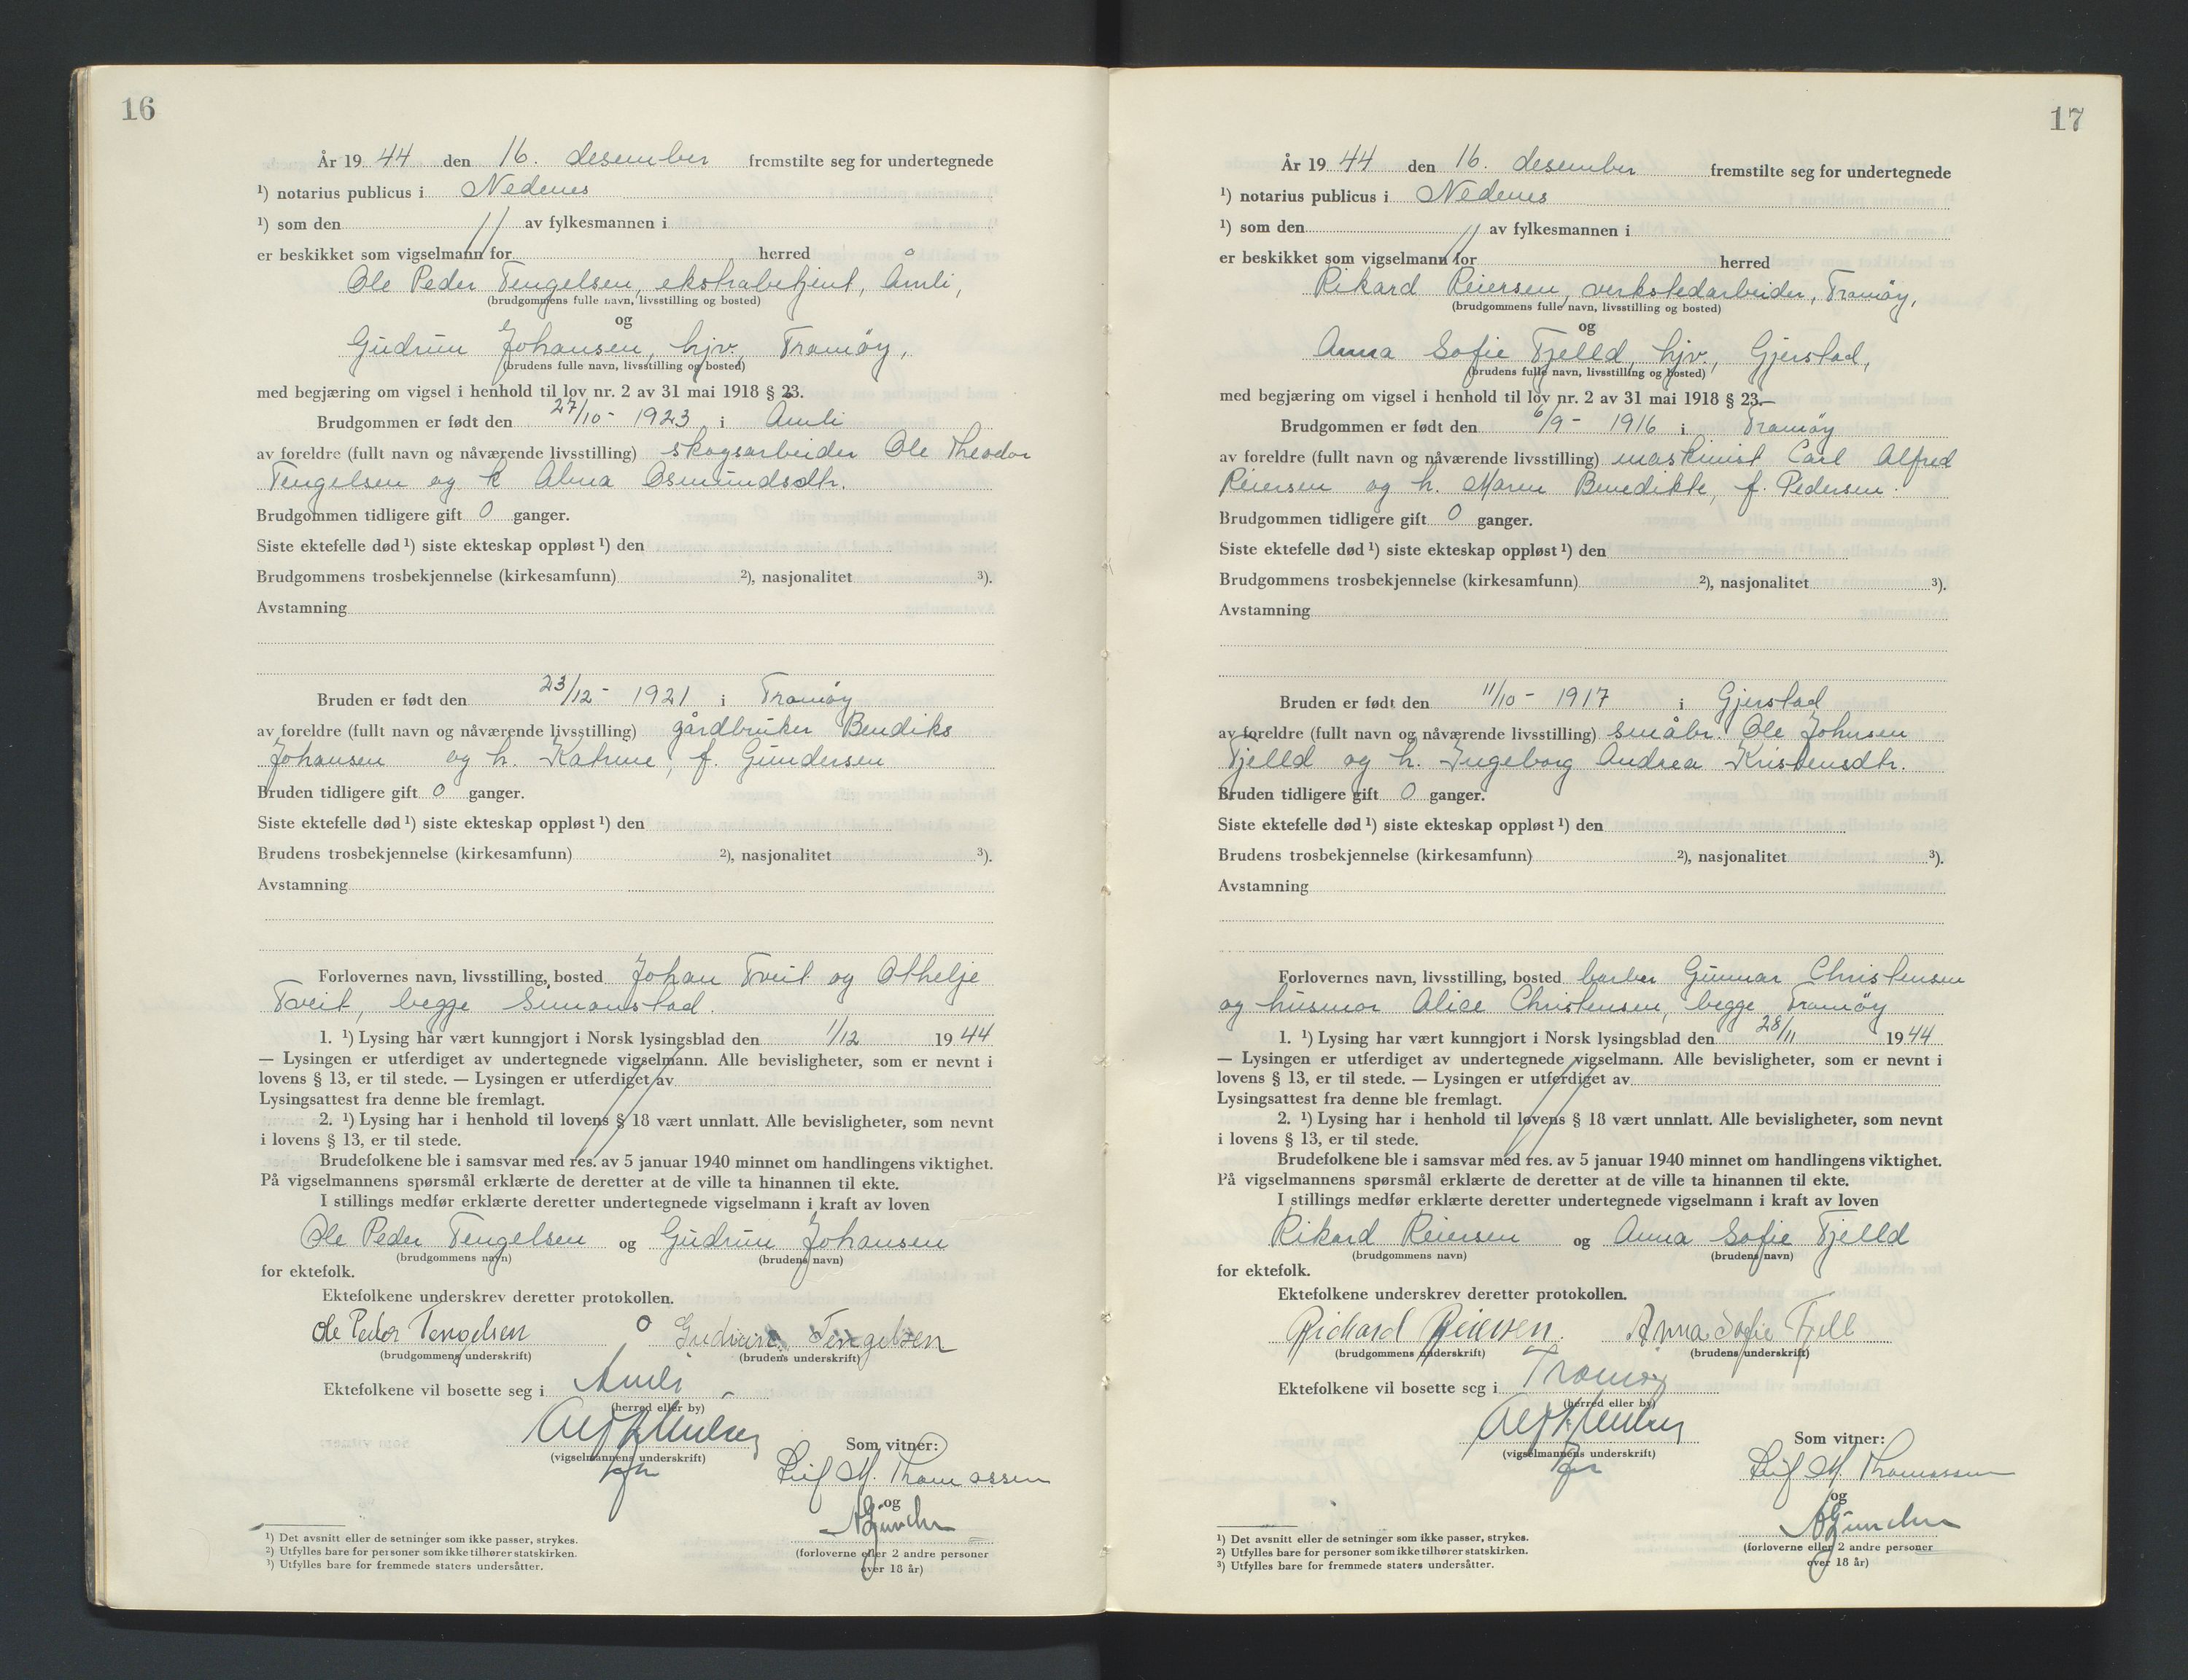 16
År 19 44 den 16. desember fremstilte seg for undertegnede
¹) notarius publicus i Nedenes
¹) som den av fylkesmannen i
er beskikket som vigselmann for herred
Ole Peder Tengelsen, ekstrabetjent, Åmli,
(brudgommens fulle navn, livsstilling og bosted)
og
Gudrun Johansen, hjv., Tromøy,
(brudens fulle navn, livsstilling og bosted)
med begjæring om vigsel i henhold til lov nr. 2 av 31 mai 1918 § 23.
Brudgommen er født den 27/10 - 1923 i Åmli
av foreldre (fullt navn og nåværende livsstilling) skogsarbeider Ole Theodor
Tengelsen og h. Alma Osmundsdtr.
Brudgommen tidligere gift 0 ganger.
Siste ektefelle død ¹) siste ekteskap oppløst ¹) den
Brudgommens trosbekjennelse (kirkesamfunn) ²), nasjonalitet ³).
Avstamning
Bruden er født den 23/12 - 1921 i Tromøy
av foreldre (fullt navn og nåværende livsstilling) gårdbruker Bendiks
Johansen og h. Katrine, f. Gundersen
Bruden tidligere gift 0 ganger.
Siste ektefelle død ¹) siste ekteskap oppløst ¹) den
Brudens trosbekjennelse (kirkesamfunn) ²), nasjonalitet ³).
Avstamning
Forlovernes navn, livsstilling, bosted Johan Tveit og Othelje
Tveit, begge Simonstad.
1. ¹) Lysing har vært kunngjort i Norsk lysingsblad den 1/12 19 44
— Lysingen er utferdiget av undertegnede vigselmann. Alle bevisligheter, som er nevnt i
lovens § 13, er til stede. — Lysingen er utferdiget av
Lysingsattest fra denne ble fremlagt.
2. ¹) Lysing har i henhold til lovens § 18 vært unnlatt. Alle bevisligheter, som nevnt
i lovens § 13, er til stede.
Brudefolkene ble i samsvar med res. av 5 januar 1940 minnet om handlingens viktighet.
På vigselmannens spørsmål erklærte de deretter at de ville ta hinannen til ekte.
I stillings medfør erklærte deretter undertegnede vigselmann i kraft av loven
Ole Peder Tengelsen og Gudrun Johansen
(brudgommens navn) (brudens navn)
for ektefolk.
Ektefolkene underskrev deretter protokollen.
Ole Peder Tengelsen Gudrun Tengelsen
(brudgommens underskrift) (brudens underskrift)
Ektefolkene vil bosette seg i Åmli
(herred eller by)
Som vitner:
(vigselmannens underskrift)
Leif M. Thomassen
og
(forloverne eller 2 andre personer
over 18 år)
¹) Det avsnitt eller de setninger som ikke passer, strykes.
²) Utfylles bare for personer som ikke tilhører statskirken.
³) Utfylles bare for fremmede staters undersåtter.
17
År 19 44 den 16. desember fremstilte seg for undertegnede
¹) notarius publicus i Nedenes
¹) som den av fylkesmannen i
er beskikket som vigselmann for herred
Rikard Reiersen, verkstedarbeider, Tromøy,
(brudgommens fulle navn, livsstilling og bosted)
og
Anna Sofie Fjelld, hjv., Gjerstad,
(brudens fulle navn, livsstilling og bosted)
med begjæring om vigsel i henhold til lov nr. 2 av 31 mai 1918 § 23.—
Brudgommen er født den 6/9 - 1916 i Tromøy
av foreldre (fullt navn og nåværende livsstilling) maskinist Carl Alfred
Reiersen og h. Maren Benedikte, f. Pedersen.
Brudgommen tidligere gift 0 ganger.
Siste ektefelle død ¹) siste ekteskap oppløst ¹) den
Brudgommens trosbekjennelse (kirkesamfunn) ²), nasjonalitet ³).
Avstamning
Bruden er født den 11/10 - 1917 i Gjerstad
av foreldre (fullt navn og nåværende livsstilling) småbr. Ole Johnsen
Fjelld og h. Ingeborg Andrea Kristensdtr.
Bruden tidligere gift 0 ganger.
Siste ektefelle død ¹) siste ekteskap oppløst ¹) den
Brudens trosbekjennelse (kirkesamfunn) ²), nasjonalitet ³).
Avstamning
Forlovernes navn, livsstilling, bosted barber Gunnar Christensen
og husmor Alice Christensen, begge Tromøy
1. ¹) Lysing har vært kunngjort i Norsk lysingsblad den 28/11 19 44
— Lysingen er utferdiget av undertegnede vigselmann. Alle bevisligheter, som er nevnt i
lovens § 13, er til stede. — Lysingen er utferdiget av
Lysingsattest fra denne ble fremlagt.
2. ¹) Lysing har i henhold til lovens § 18 vært unnlatt. Alle bevisligheter, som nevnt
i lovens § 13, er til stede.
Brudefolkene ble i samsvar med res. av 5 januar 1940 minnet om handlingens viktighet.
På vigselmannens spørsmål erklærte de deretter at de ville ta hinannen til ekte.
I stillings medfør erklærte deretter undertegnede vigselmann i kraft av loven
Rikard Reiersen og Anna Sofie Fjelld
(brudgommens navn) (brudens navn)
for ektefolk.
Ektefolkene underskrev deretter protokollen.
Richard Reiersen. Anna Sofie Fjell
(brudgommens underskrift) (brudens underskrift)
Ektefolkene vil bosette seg i Tromøy
(herred eller by)
Som vitner:
(vigselmannens underskrift)
Leif M. Thomassen
og
(forloverne eller 2 andre personer
over 18 år)
¹) Det avsnitt eller de setninger som ikke passer, strykes.
²) Utfylles bare for personer som ikke tilhører statskirken.
³) Utfylles bare for fremmede staters undersåtter.